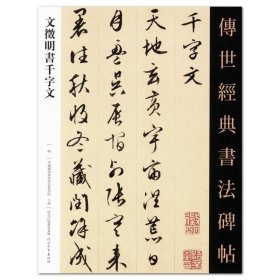 傳世經典書法碑帖
千字文
天地玄黃宇宙洪荒日
月盈昃辰宿列張寒來
暑往秋收冬藏閏餘成
文徵明書千字文